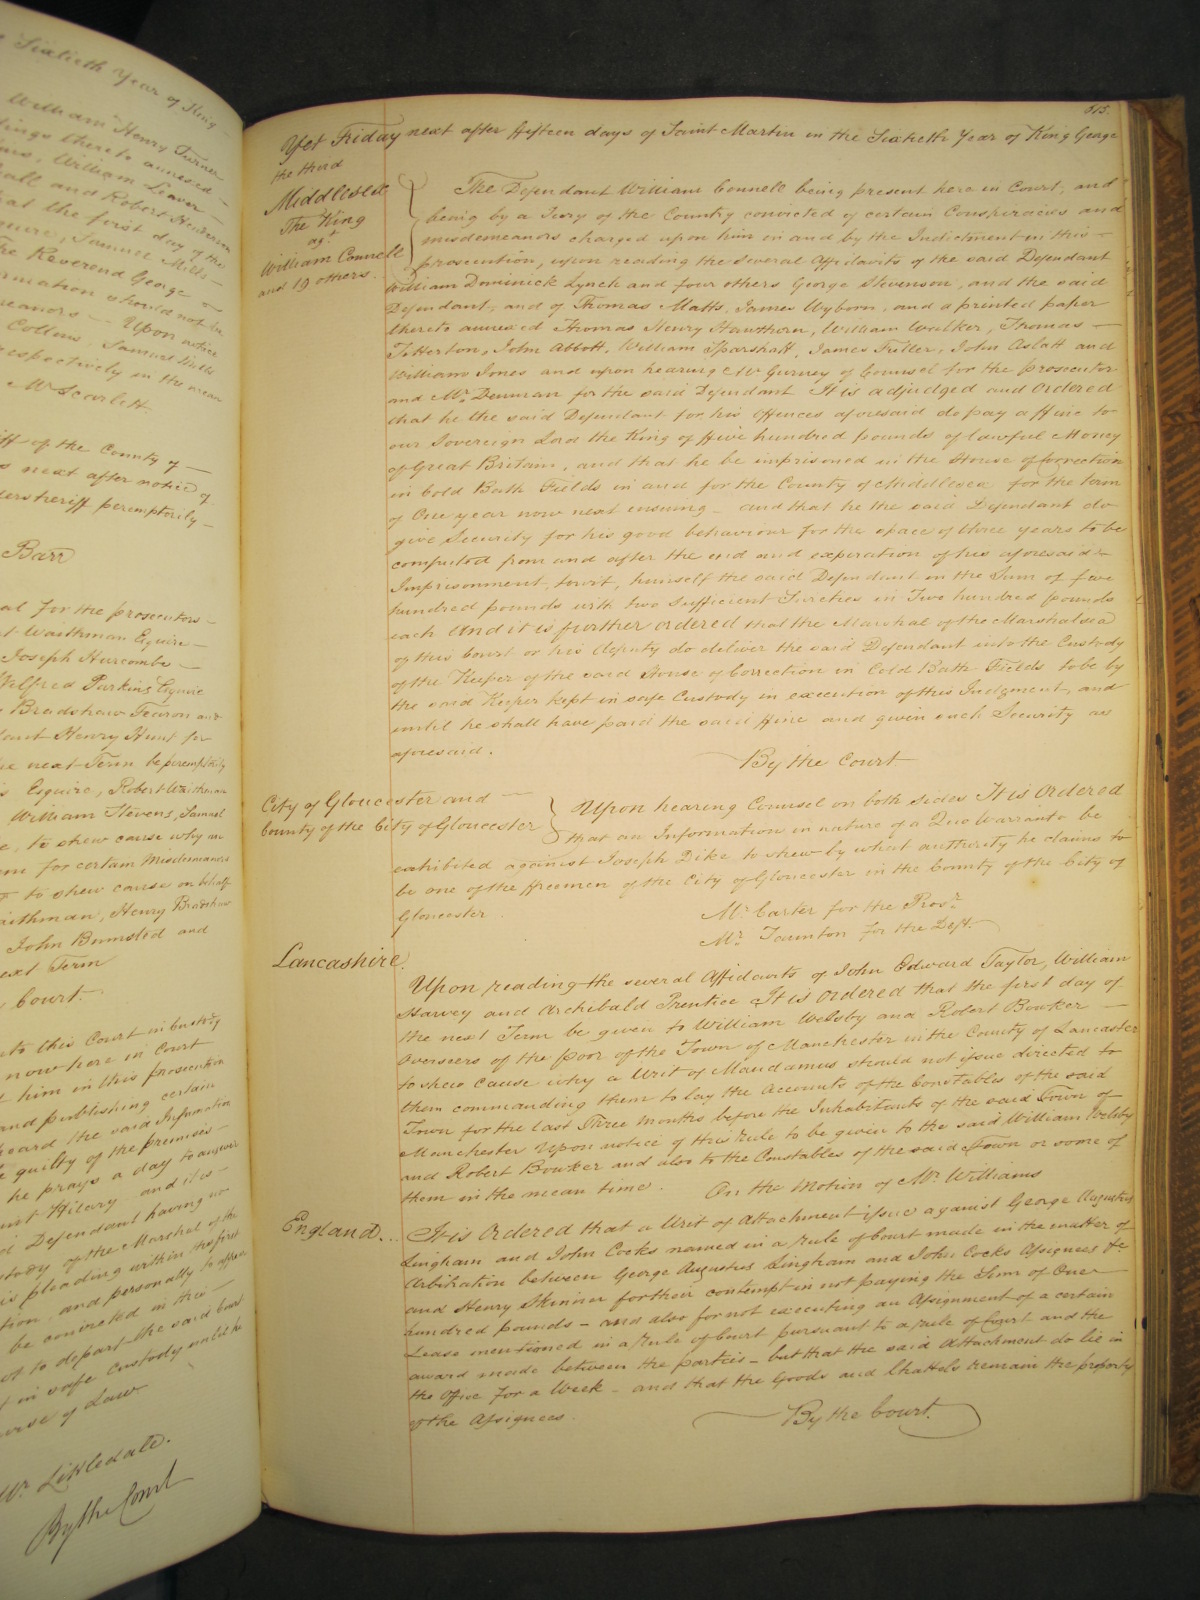 e Sixtieth Year of King
William Henry Turner
dings thereto annexed
William Leaver
all and Robert Henderson
at the first day of the
quire, Samuel Mills
The Reverend George
rmation should not be
meanors Upon notice
Collins Samuel Mills
respectively in the mean
Mr Scarlett.
iff of the County of
next after notice of
dersheriff peremptorily
Barr
for the prosecutors
t Waithman Esquire
Joseph Hurcombe
Wilfred Parkins Esquire
Bradshaw Fearon and
Henry Hunt for
he next Term be peremptorily
Esquire, Robert Waithman
William Stevens, Samuel
e, to shew cause why an
for certain Misdemeanors
to shew cause on behalf
aithman, Henry Bradshaw
John Bumsted and
next Term
Court.
into this Court in Custody
now here in Court
him in this prosecution
and publishing certain
heard the said Information
guilty of the premises
he prays a day to answer
Saint Hilary and it is
Defendant having no
stody of the Marshal of the
is pleading within the first
tion, and personally to appear
be convicted in this
not to depart the said Court
in safe custody until he
course of Law
Mr. Littledale.
By the Court
615.
Yet Friday next after fifteen days of Saint Martin in the Sixtieth Year of King George
the third
Middlesex
The King
agt
William Connell
and 19 others.
The Defendant William Connell being present here in Court, and
being by a Jury of the Country convicted of certain Conspiracies and
misdemeanors charged upon him in and by the Indictment in this
prosecution, upon reading the several Affidavits of the said Defendant
William Dominick Lynch and four others George Stevenson, and the said
Defendant, and of Thomas Matts, James Wyborn, and a printed paper
thereto annexed Thomas Henry Hawthorn, William Walker, Thomas
Titterton, John Abbott, William Sparshatt, James Fuller, John Aslatt and
William Jones and upon hearing Mr Gurney of Counsel for the prosecutor
and Mr. Denman for the said Defendant It is adjudged and Ordered
that he the said Defendant for his Offences aforesaid do pay a ffine to
our Sovereign Lord the King of ffive hundred pounds of lawful Money
of Great Britain, and that he be imprisoned in the House of Correction
in Cold Bath Fields in and for the County of Middlesex for the term
of One year now next ensuing - and that he the said Defendant do
give Security for his good behaviour for the space of three years to be
computed from and after the end and expiration of his aforesaid
Imprisonment, towit, himself the said Defendant in the Sum of five
hundred pounds with two sufficient Sureties in Two hundred pounds
each And it is further ordered that the Marshal of the Marshalsea
of this Court or his deputy do deliver the said Defendant into the Custody
of the Keeper of the said House of Correction in Cold Bath Fields to be by
the said Keeper kept in safe Custody in execution of this Judgment, and
until he shall have paid the said ffine and given such Security as
aforesaid.
By the Court
City of Gloucester and
County of the City of Gloucester
Upon hearing Counsel on both sides It is Ordered
that an Information in nature of a Quo Warranto be
exhibited against Joseph Dike to shew by what authority he claims to
be one of the ffreemen of the City of Gloucester in the County of the City of
Gloucester
Mr. Carter for the Prosr.
Mr. Taunton for the Deft.
Lancashire.
Upon reading the several Affidavits of John Edward Taylor, William
Harvey and Archibald Prentice It is Ordered that the first day of
the next Term be given to William Welsby and Robert Bowker
Overseers of the poor of the Town of Manchester in the County of Lancaster
to shew cause why a Writ of Mandamus should not issue directed to
them commanding them to lay the Accounts of the Constables of the said
Town for the last Three Months before the Inhabitants of the said Town of
Manchester Upon notice of this Rule to be given to the said William Welsby
and Robert Bowker and also to the Constables of the said Town or some of
them in the mean time. On the Motion of Mr. Williams
England.
It is Ordered that a Writ of Attachment issue against George Augustus
Lingham and John Cocks named in a Rule of Court made in the matter of
Arbitration between George Augustus Lingham and John Cocks Assignees &c
and Henry Skinner for their contempt in not paying the Sum of One
hundred pounds - and also for not executing an Assignment of a certain
Lease mentioned in a Rule of Court pursuant to a rule of Court and the
award made between the parties - but that the said Attachment do lie in
the Office for a Week - and that the Goods and Chattels remain the property
of the Assignees.
By the Court.